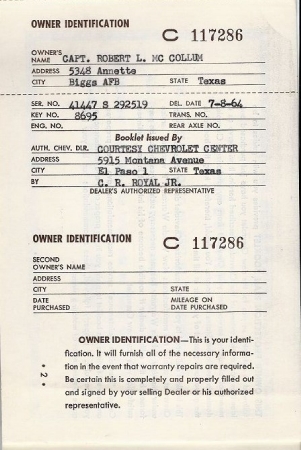 OWNER IDENTIFICATION
C 117286
OWNER'S
NAME CAPT. ROBERT L. MC COLLUM
ADDRESS 5348 Annette
CITY Biggs AFB STATE Texas
SER. NO. 41447 S 292519 DEL. DATE 7-8-64
KEY NO. 8695 TRANS. NO.
ENG. NO. REAR AXLE NO.
Booklet Issued By
AUTH. CHEV. DLR. COURTESY CHEVROLET CENTER
ADDRESS 5915 Montana Avenue
CITY El Paso 1 STATE Texas
BY C. R. ROYAL JR.
DEALER'S AUTHORIZED REPRESENTATIVE
OWNER IDENTIFICATION C 117286
SECOND
OWNER'S NAME
ADDRESS
CITY STATE
DATE MILEAGE ON
PURCHASED DATE PURCHASED
OWNER IDENTIFICATION—This is your identi-
fication. It will furnish all of the necessary informa-
tion in the event that warranty repairs are required.
Be certain this is completely and properly filled out
and signed by your selling Dealer or his authorized
representative.
• 2 •